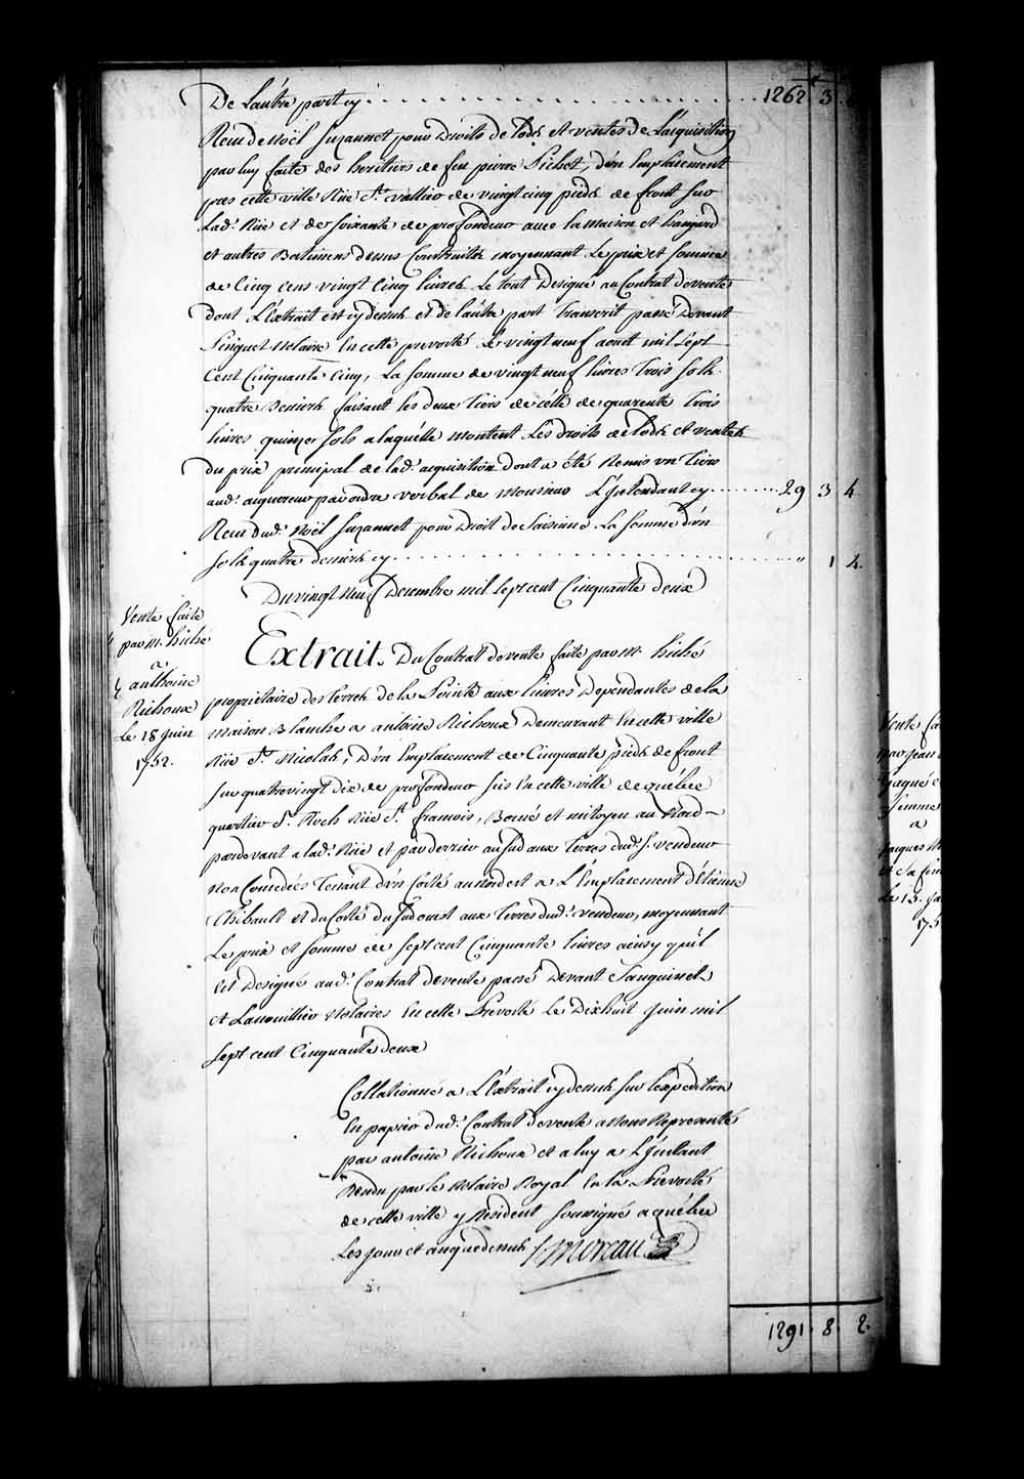 De L'autre part cy . . . . . . . . . . 1262 3
Reçu de Noël Suzannet pour Droits de lods et ventes de L'acquisition
par luy faite des heritiers de feu pierre Pichet, d'un Emplacement
pres cette ville Rüe St. vallier de vingt cinq pieds de front sur
Lad. Rüe et de soixante de profondeur avec la maison et hangard
et autres Batimens dessus Construits moyennant Le prix et somme
de Cinq cens vingt Cinq livres Le tout Designé au Contrat de vente
dont L'Extrait est cy dessus et de L'autre part transcrit passé Devant
Pinguet Notaire En cette prevosté Le vingt neuf aoust mil sept
Cent Cinquante Cinq, La somme de vingt neuf livres Trois sols
quatre Deniers faisant les deux Tiers de celle de quarente trois
livres quinze sols a laquelle montent Les droits de lods et ventes
du prix principal de lad. acquisition dont a été Remis un Tiers
aud. acquereur par ordre verbal de Monsieur L'Intendant cy . . . . 29 3 4
Reçu dud. Noël Suzannet pour Droit de Saisinne La somme d'un
sols quatre deniers cy . . . . . . . . . . " 1 4.
Du vingt neuf Decembre mil sept cent Cinquante deux
Vente faite
par M. hiché
a
anthoine
Richoux
Le 18 Juin
1752.
Extrait. Du Contrat de vente faite par M. hiché
proprietaire des terres de la Pointe aux lievres Dependantes de la
maison Blanche a antoine Richoux Demeurant En cette ville
Rüe St. Nicolas, D'un Emplacement de Cinquante pieds de front
sur quatre vingt dix de profondeur sis En cette ville de québec
quartier St. Roch Rüe St. francois, Borné et mitoyen au Nord
pardevant a lad. Rüe et par derrier au Sud aux Terres dud. S. vendeur
non Concedées Tenant d'un Costé au nordest a L'Emplacement d'Etienne
Thibault et du Costé du Sud ouest aux Terres dud. vendeur, moyennant
Le prix et somme de sept cent Cinquante livres ainsy qu'il
est Designé aud. Contrat de vente passé Devant Sanguinet
et Lanouillier Notaires En cette Prevosté Le Dixhuit Juin mil
sept cent Cinquante deux
Collationné a L'Extrait cy dessus sur L'expedition
En papier dud. Contrat de vente a Nous Representé
par antoine Richoux et a luy a L'Instant
Rendu par le Notaire Royal En la Prevosté
de cette ville y Resident soussigné a québec
Les jour et an que dessus Moreau
1291 8 2.
Vente fa
par Jean
Gagné e
femme
a
Jacques
et sa fem
Le 13. Ja
175